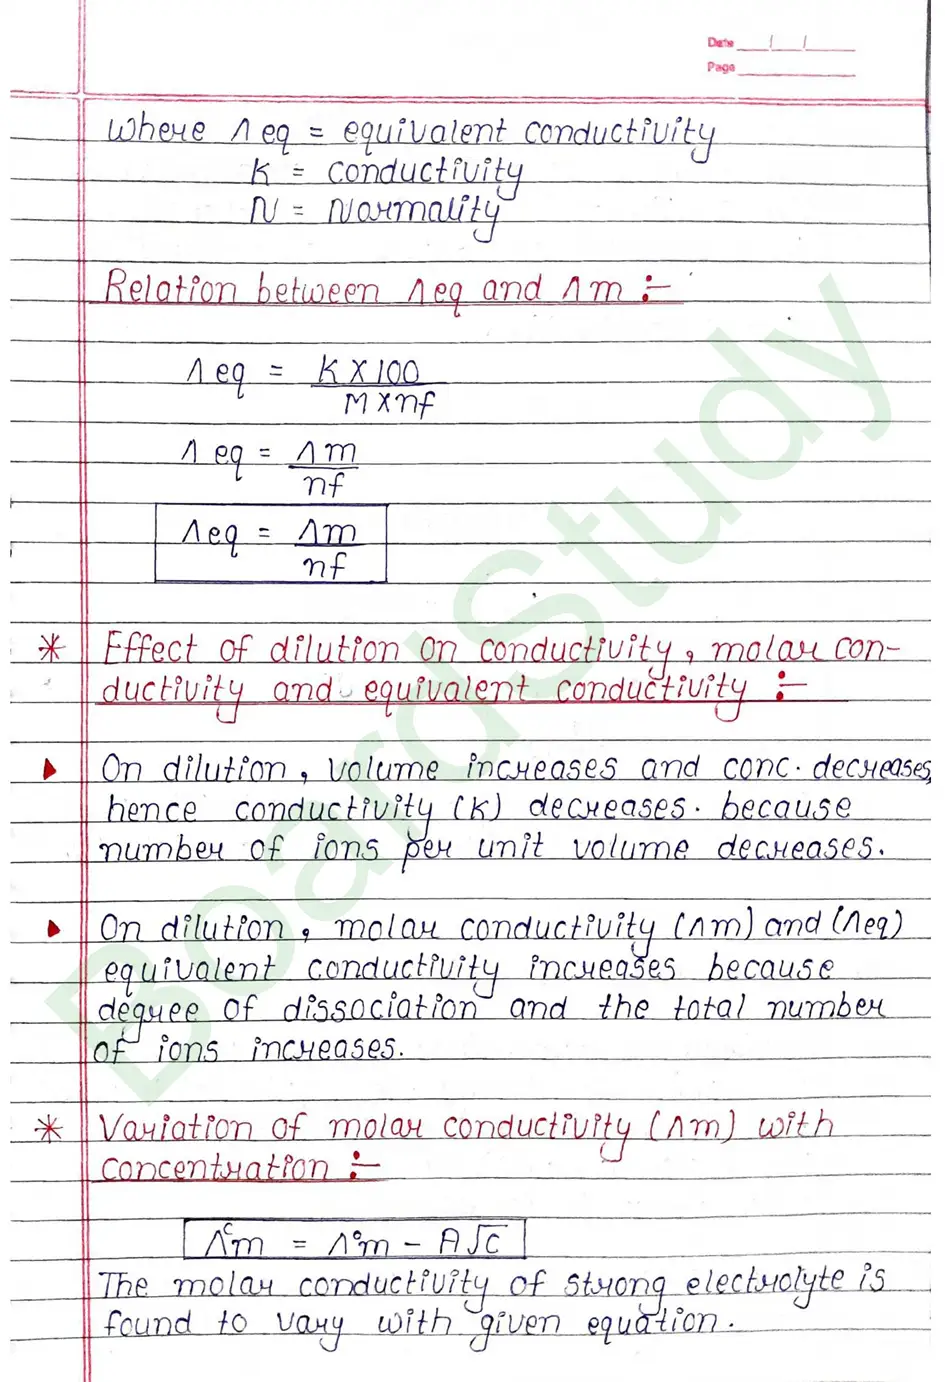 Date / /
Page
where Λeq = equivalent conductivity
K = conductivity
N = Normality
Relation between Λeq and Λm :-
Λeq = K X 100 / M X nf
Λeq = Λm / nf
Λeq = Λm / nf
* Effect of dilution on conductivity, molar con-
ductivity and equivalent conductivity :-
▶ On dilution, volume increases and conc. decreases,
hence conductivity (K) decreases. because
number of ions per unit volume decreases.
▶ On dilution, molar conductivity (Λm) and (Λeq)
equivalent conductivity increases because
degree of dissociation and the total number
of ions increases.
* Variation of molar conductivity (Λm) with
concentration :-
Λᶜm = Λ°m - A√C
The molar conductivity of strong electrolyte is
found to vary with given equation.
BoardStudy